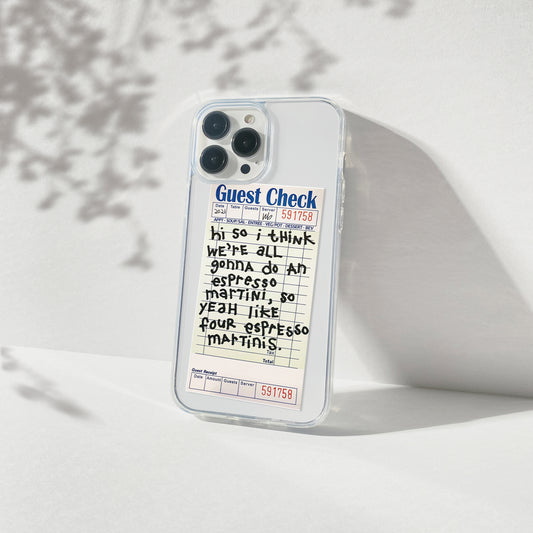 Guest Check
Date Table Guests Server 591758
2021 Wb
APPT - SOUP/SAL - ENTREE - VEG/POT - DESSERT - BEV
hi so i tHiNK
WE'RE aLL
gonna do an
espresso
marTiNi, so
yEaH LiKE
foUR espResso
maRTiNiS.
Tax
Total
Guest Receipt
Date Amount Guests Server 591758